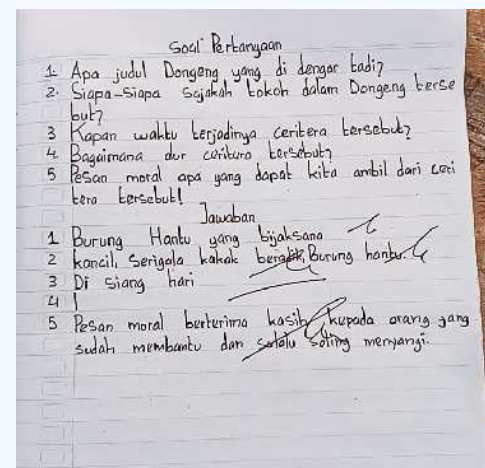 Soal Pertanyaan
1. Apa judul Dongeng yang di dengar tadi?
2. Siapa-Siapa Sajakah tokoh dalam Dongeng terse
but?
3 Kapan waktu terjadinya ceritera tersebut?
4. Bagaimana alur ceritera tersebut?
5 Pesan moral apa yang dapat kita ambil dari ceri
tera tersebut!
Jawaban
1 Burung Hantu yang bijaksana
2 kancil, Serigala kakak beradik, Burung hantu.
3 Di siang hari
4
5 Pesan moral berterima kasih kepada orang yang
sudah membantu dan selalu saling menyangi.